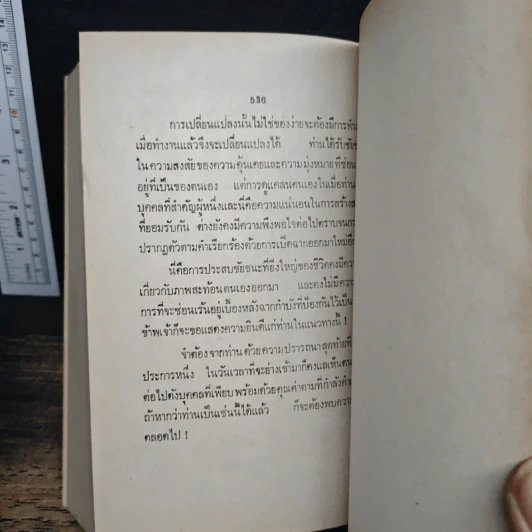 536
การเปลี่ยนแปลงนั้นไม่ใช่ของง่ายจะต้องมีการทำ
เมื่อทำงานแล้วจึงจะเปลี่ยนแปลงได้ ท่านได้รับชัย
ในความสงสัยของความคุ้นเคยและความมุ่งหมายที่ซ่อน
อยู่ที่เป็นของตนเอง แต่การดูแคลนตนเองในเมื่อท่าน
บุคคลที่สำคัญผู้หนึ่งและนี่คือความแน่นอนในการสร้าง
ที่ยอมรับกัน ต่างยังคงมีความพึงพอใจต่อไปตราบจน
ปรากฏตัวตามคำเรียกร้องด้วยการเปิดฉากออกมาใหม่อีก
นี่คือการประสบชัยชนะที่ยิ่งใหญ่ของชีวิตคงมีความ
เกี่ยวกับภาพสะท้อนตนเองออกมา และคงไม่มีความ
การที่จะซ่อนเร้นอยู่เบื้องหลังฉากกำบังที่ป้องกันไว้เป็น
ข้าพเจ้าก็จะขอแสดงความยินดีแก่ท่านในแนวทางนี้ !
จำต้องจากท่านด้วยความปรารถนาสุดท้ายที่
ประการหนึ่ง ในวันเวลาที่จะย่างเข้ามาก็คงแลเห็นตน
ต่อไปดังบุคคลที่เพียบพร้อมด้วยคุณค่าตามที่กำลัง
ถ้าหากว่าท่านเป็นเช่นนี้ได้แล้ว ก็จะต้องพบความ
ตลอดไป !